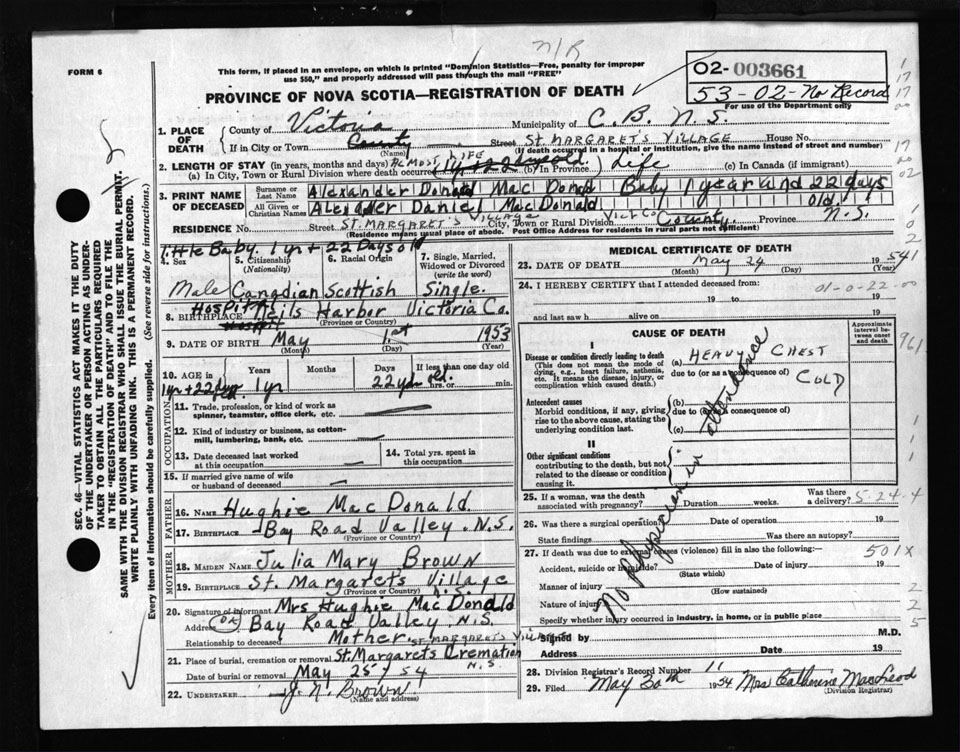 N/R
FORM 6
This form, if placed in an envelope, on which is printed "Dominion Statistics—Free, penalty for improper
use $50," and properly addressed will pass through the mail "FREE"
02-003661
53-02-No Record
For use of the Department only
PROVINCE OF NOVA SCOTIA—REGISTRATION OF DEATH
1. PLACE OF DEATH
County of Victoria County Municipality of C.B. N.S.
If in City or Town (Name) Street ST. MARGARET'S VILLAGE House No.
(If death occurred in a hospital or institution, give the name instead of street and number)
2. LENGTH OF STAY (in years, months and days) ALMOST LIFE
(a) In City, Town or Rural Division where death occurred (b) In Province) Life (c) In Canada (if immigrant)
3. PRINT NAME OF DECEASED
Surname or Last Name Alexander Donald Mac Donald Baby 1 year and 22 days
All Given or Christian Names Alexader Daniel MacDonald old
RESIDENCE No. Street ST. MARGARET'S Village City, Town or Rural Division County. Province N.S.
(Residence means usual place of abode. Post Office Address for residents in rural parts not sufficient)
little Baby. 1 yr + 22 Days old
4. Sex 5. Citizenship (Nationality) 6. Racial Origin 7. Single, Married, Widowed or Divorced (write the word)
Male Canadian Scottish Single.
Hospital
8. BIRTHPLACE Neils Harbor Victoria Co.
(Province or Country)
9. DATE OF BIRTH May 1st 1953
(Month) (Day) (Year)
10. AGE in Years Months Days If less than one day old
1yr + 22 1yr 22 old. hrs. or min.
OCCUPATION
11. Trade, profession, or kind of work as spinner, teamster, office clerk, etc.
12. Kind of industry or business, as cotton-mill, lumbering, bank, etc.
13. Date deceased last worked at this occupation
14. Total yrs. spent in this occupation
15. If married give name of wife or husband of deceased
FATHER
16. Name Hughie Mac Donald
17. Birthplace Bay Road Valley. N.S.
(Province or Country)
MOTHER
18. MAIDEN NAME Julia Mary Brown
19. BIRTHPLACE St. Margarets Village
(Province or Country) N.S.
20. Signature of informant Mrs Hughie Mac Donald
Address Bay Road Valley. N.S.
Relationship to deceased Mother
ST. MARGARET'S Village
21. Place of burial, cremation or removal St. Margarets Cremation
N.S.
Date of burial or removal May 25 / 54
22. UNDERTAKER J. N. Brown
(Name and Address)
MEDICAL CERTIFICATE OF DEATH
23. DATE OF DEATH May 24 1954
(Month) (Day) (Year)
24. I HEREBY CERTIFY that I attended deceased from:
01-0-22-00
19 to 19
and last saw h alive on 19
CAUSE OF DEATH
Approximate interval between onset and death
I
Disease or condition directly leading to death
(This does not mean the mode of dying, e.g., heart failure, asthenia, etc. It means the disease, injury, or complication which caused death.)
(a) HEAVY CHEST
due to (or as a consequence of) COLD
961
Antecedent causes
Morbid conditions, if any, giving rise to the above cause, stating the underlying condition last.
(b)
due to (or as a consequence of)
(c)
II
Other significant conditions
contributing to the death, but not related to the disease or condition causing it.
No physician in attendance
25. If a woman, was the death associated with pregnancy? Duration weeks. Was there a delivery?
5-24-4
26. Was there a surgical operation Date of operation 19
State findings Was there an autopsy?
27. If death was due to external causes (violence) fill in also the following:—
501X
Accident, suicide or homicide? Date of injury 19
(State which)
Manner of injury
(How sustained)
Nature of injury
Specify whether injury occurred in industry, in home, or in public place
Signed by M.D.
Address Date 19
28. Division Registrar's Record Number 11
29. Filed May 30th 1954 Mrs Catherine MacLeod
(Division Registrar)
SEC. 46—VITAL STATISTICS ACT MAKES IT THE DUTY
OF THE UNDERTAKER OR PERSON ACTING AS UNDER-
TAKER TO OBTAIN ALL THE PARTICULARS REQUIRED
IN THE "REGISTRATION OF DEATH" AND TO FILE THE
SAME WITH THE DIVISION REGISTRAR WHO SHALL ISSUE THE BURIAL PERMIT.
WRITE PLAINLY WITH UNFADING INK. THIS IS A PERMANENT RECORD.
Every item of information should be carefully supplied. (See reverse side for instructions.)